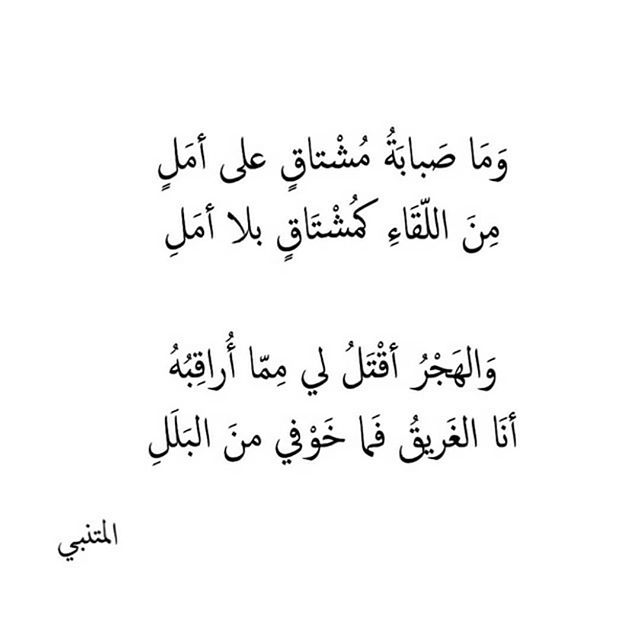 وَمَا صَبابَةُ مُشْتاقٍ على أمَلٍ
مِنَ اللّقَاءِ كمُشْتَاقٍ بلا أمَلِ
وَالهَجْرُ أقْتَلُ لي مِمّا أُراقِبُهُ
أنَا الغَريقُ فَما خَوْفي منَ البَلَلِ
المتنبي